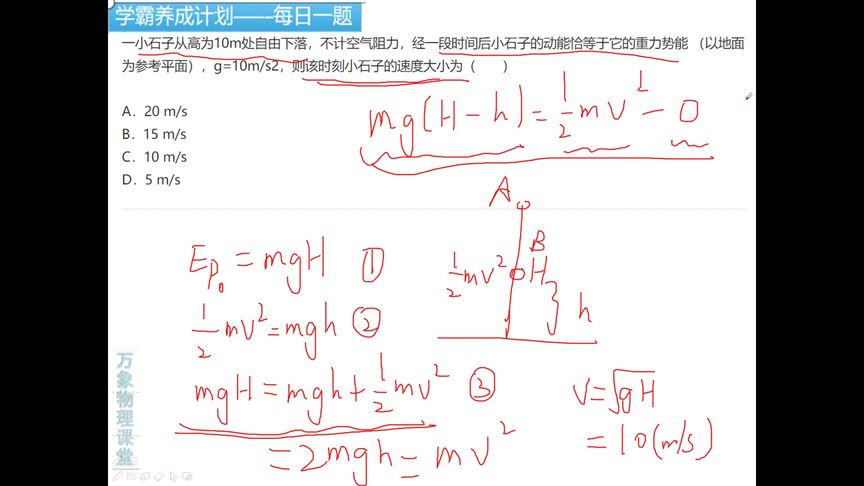 学霸养成计划——每日一题
一小石子从高为10m处自由下落，不计空气阻力，经一段时间后小石子的动能恰等于它的重力势能 （以地面
为参考平面），g=10m/s2，则该时刻小石子的速度大小为（ ）
A. 20 m/s
B. 15 m/s
C. 10 m/s
D. 5 m/s
mg(H-h)=1/2mv²-0
A
B
1/2mv²
H
h
Ep₀=mgH ①
1/2mv²=mgh ②
mgH=mgh+1/2mv² ③
=2mgh=mv²
v=√gH
=10(m/s)
万象物理课堂